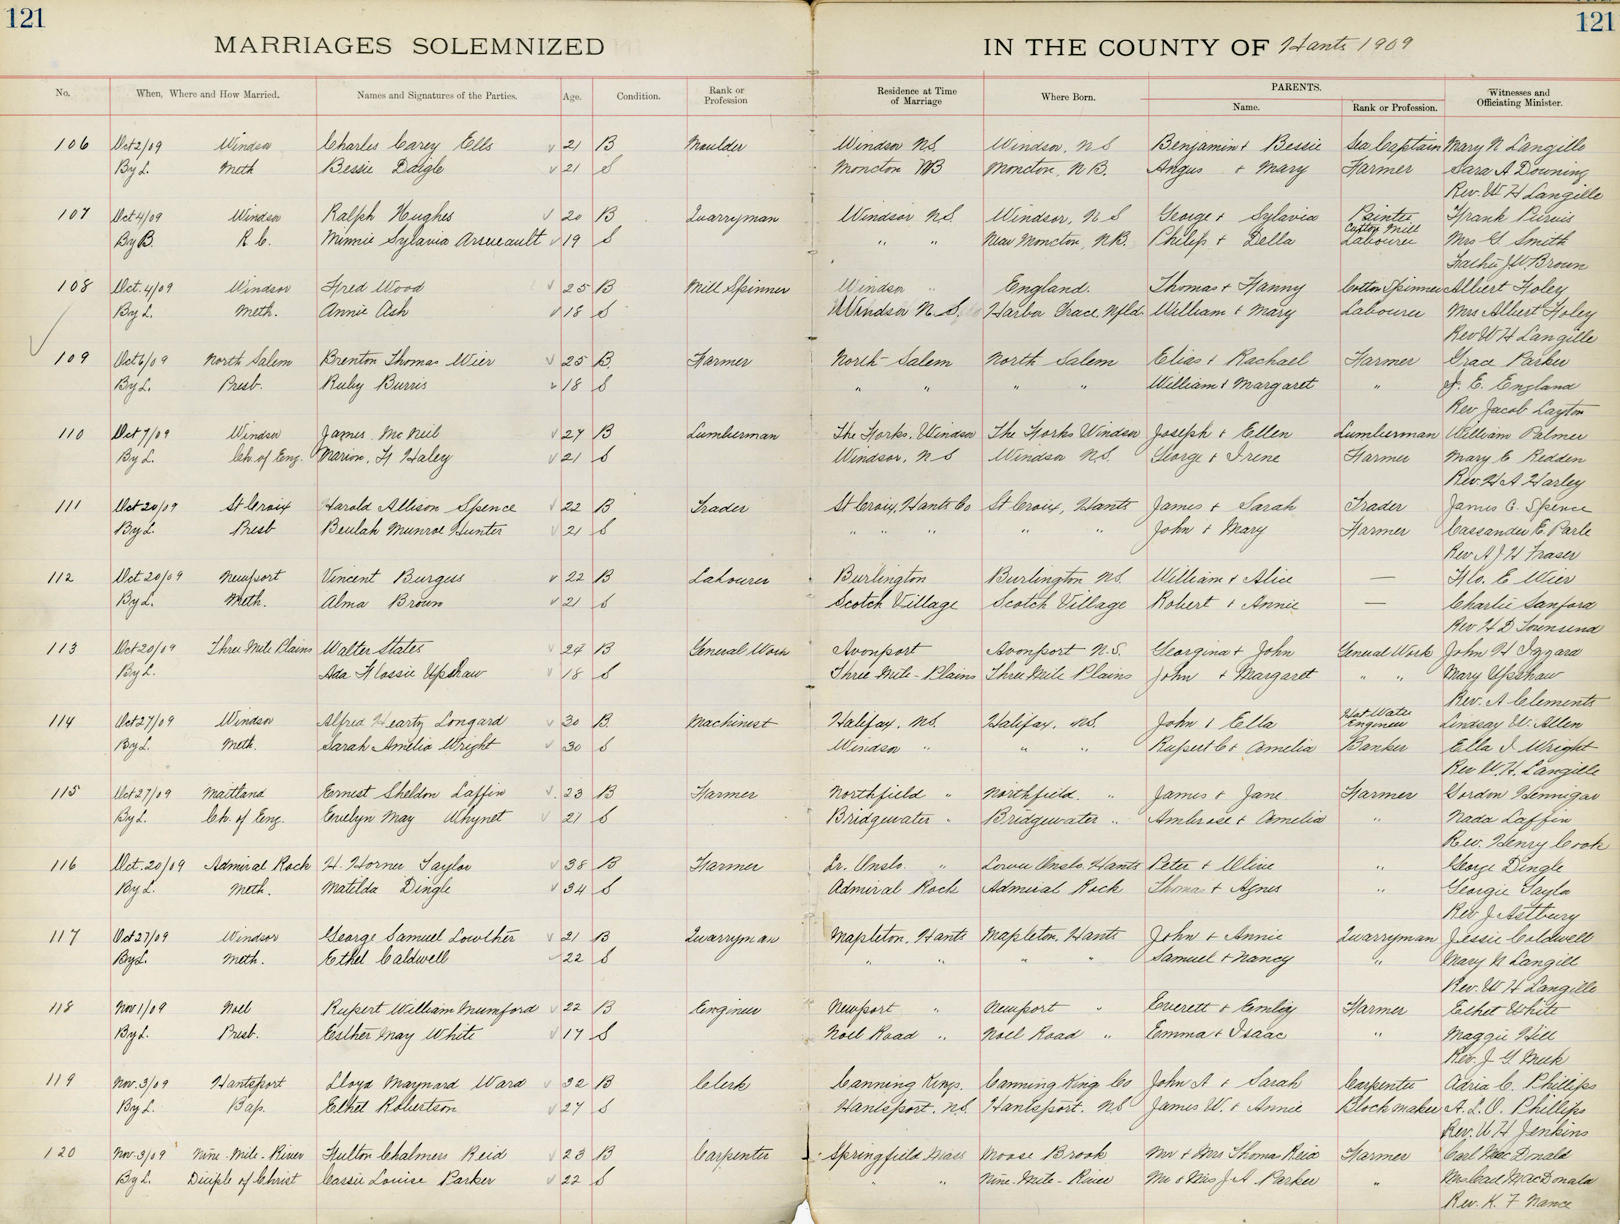 121 121
MARRIAGES SOLEMNIZED IN THE COUNTY OF Hants 1909
No. When, Where and How Married. Names and Signatures of the Parties. Age. Condition. Rank or Profession Residence at Time of Marriage Where Born. PARENTS. Name. Rank or Profession. Witnesses and Officiating Minister.
106 Oct 2/09 Windsor Charles Carey Ells 21 B Moulder Windsor NS Windsor, NS Benjamin + Bessie Sea Captain Mary N Langille
By L. Meth Bessie Daigle 21 S Moncton NB Moncton, N.B. Angus + Mary Farmer Sara A Downing
Rev. W H Langille
107 Oct 4/09 Windsor Ralph Hughes 20 B Quarryman Windsor NS Windsor, NS George + Sylavia Painter Frank Purvis
By B. R C. Minnie Sylavia Arseneault 19 S " " Near Moncton, N.B. Philip + Della Cotton Mill Labourer Mrs G. Smith
Father J W. Brown
108 Oct. 4/09 Windsor Fred Wood 25 B Mill Spinner Windsor " England. Thomas + Fanny Cotton Spinner Albert Foley
By L. Meth. Annie Ash 18 S Windsor N.S. Harbor Grace Nfld. William + Mary Labourer Mrs Albert Foley
Rev W H Langille
109 Oct 6/09 North Salem Brenton Thomas Wier 25 B. Farmer North Salem North Salem Elias + Rachael Farmer Grace Parker
By L. Presb. Ruby Burris 18 S " " " " William + Margaret " J. E. England
Rev Jacob Layton
110 Oct 7/09 Windsor James McNeil 27 B Lumberman The Forks, Windsor The Forks Windsor Joseph + Ellen Lumberman William Palmer
By L. Ch. of Eng. Marion, H Haley 21 S Windsor, NS Windsor N.S. George + Irene Farmer Mary E Redden
Rev. H A Harley
111 Oct 20/09 St Croix Harold Allison Spence 22 B Trader St Croix, Hants Co St Croix, Hants James + Sarah Trader James C. Spence
By L. Presb Beulah Munroe Hunter 21 S " " " " " John + Mary Farmer Cassander E. Parle
Rev A J H Fraser
112 Oct 20/09 Newport Vincent Burgess 22 B Labourer Burlington Burlington NS. William + Alice — Flo. E Wier
By L. Meth. Alma Brown 21 S Scotch Village Scotch Village Robert + Annie — Charlie Sanford
Rev H D Townsend
113 Oct 20/09 Three Mile Plains Walter States 24 B General Work Avonport Avonport N.S. Georgina + John General Work John H Izzard
By L. Ada Flossie Upshaw 18 S Three Mile-Plains Three Mile Plains John + Margaret " " Mary Upshaw
Rev. A Clements
114 Oct 27/09 Windsor Alfred Hearty Longard 30 B. Machinist Halifax, NS. Halifax, NS. John + Ella Hot Water Engineer Lindsay W. Allen
By L. Meth. Sarah Amelia Wright 30 S Windsor " " " Rupert C + Amelia Banker Ella I Wright
Rev W. H. Langille
115 Oct 27/09 Maitland Ernest Sheldon Laffin 23 B Farmer Northfield " Northfield. " James + Jane Farmer Gordon Hennigar
By L. Ch. of Eng. Evelyn May Whynet 21 S Bridgewater " Bridgewater " Ambrose + Amelia " Nada Laffin
Rev. Henry Cook
116 Oct. 20/09 Admiral Rock H. Horner Taylor 38 B Farmer Lr. Onslo. " Lower Onslo Hants Peter + Olive " George Dingle
By L. Meth. Matilda Dingle 34 S Admiral Rock Admiral Rock Thomas + Agnes " Georgie Taylor
Rev J. Astbury
117 Oct 27/09 Windsor George Samuel Lowther 21 B Quarryman Mapleton, Hants Mapleton, Hants John + Annie Quarryman Jessie Caldwell
By L. Meth. Ethel Caldwell 22 S " " " " Samuel + Nancy " Mary N Langill
Rev. W H Langille
118 Nov 1/09 Noel Rupert William Mumford 22 B Engineer Newport " Newport " Everett + Emily Farmer Ethel White
By L. Presb. Esther May White 17 S Noel Road " Noel Road " Emma + Isaac " Maggie Hill
Rev. J. G. Meek
119 Nov. 3/09 Hantsport Lloyd Maynard Ward 32 B Clerk Canning Kings. Canning King Co John A + Sarah Carpenter Adria C. Phillips
By L. Bap. Ethel Robertson 27 S Hantsport. NS. Hantsport. NS James W. + Annie Blockmaker A. L. O. Phillips
Rev. W H Jenkins
120 Nov. 3/09 Nine-Mile-River Fulton Chalmers Reid 23 B Carpenter Springfield Mass Moose Brook Mr + Mrs Thomas Reid Farmer Carl MacDonald
By L. Disciple of Christ Cassie Louise Parker 22 S " " Nine-Mile-River Mr + Mrs J A Parker " Mrs Carl MacDonald
Rev. K. F Nance